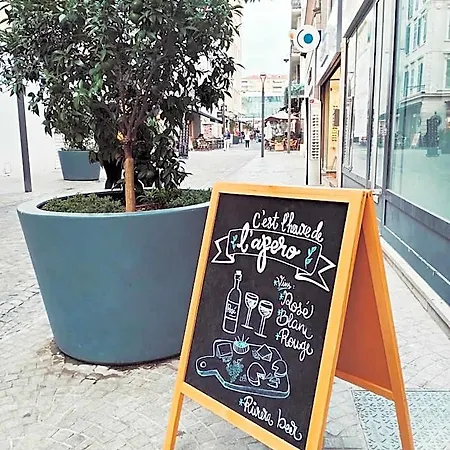 C'est l'heure de
l'apero
Vins:
*Rosé
*Blanc
*Rouge
Rivier bar